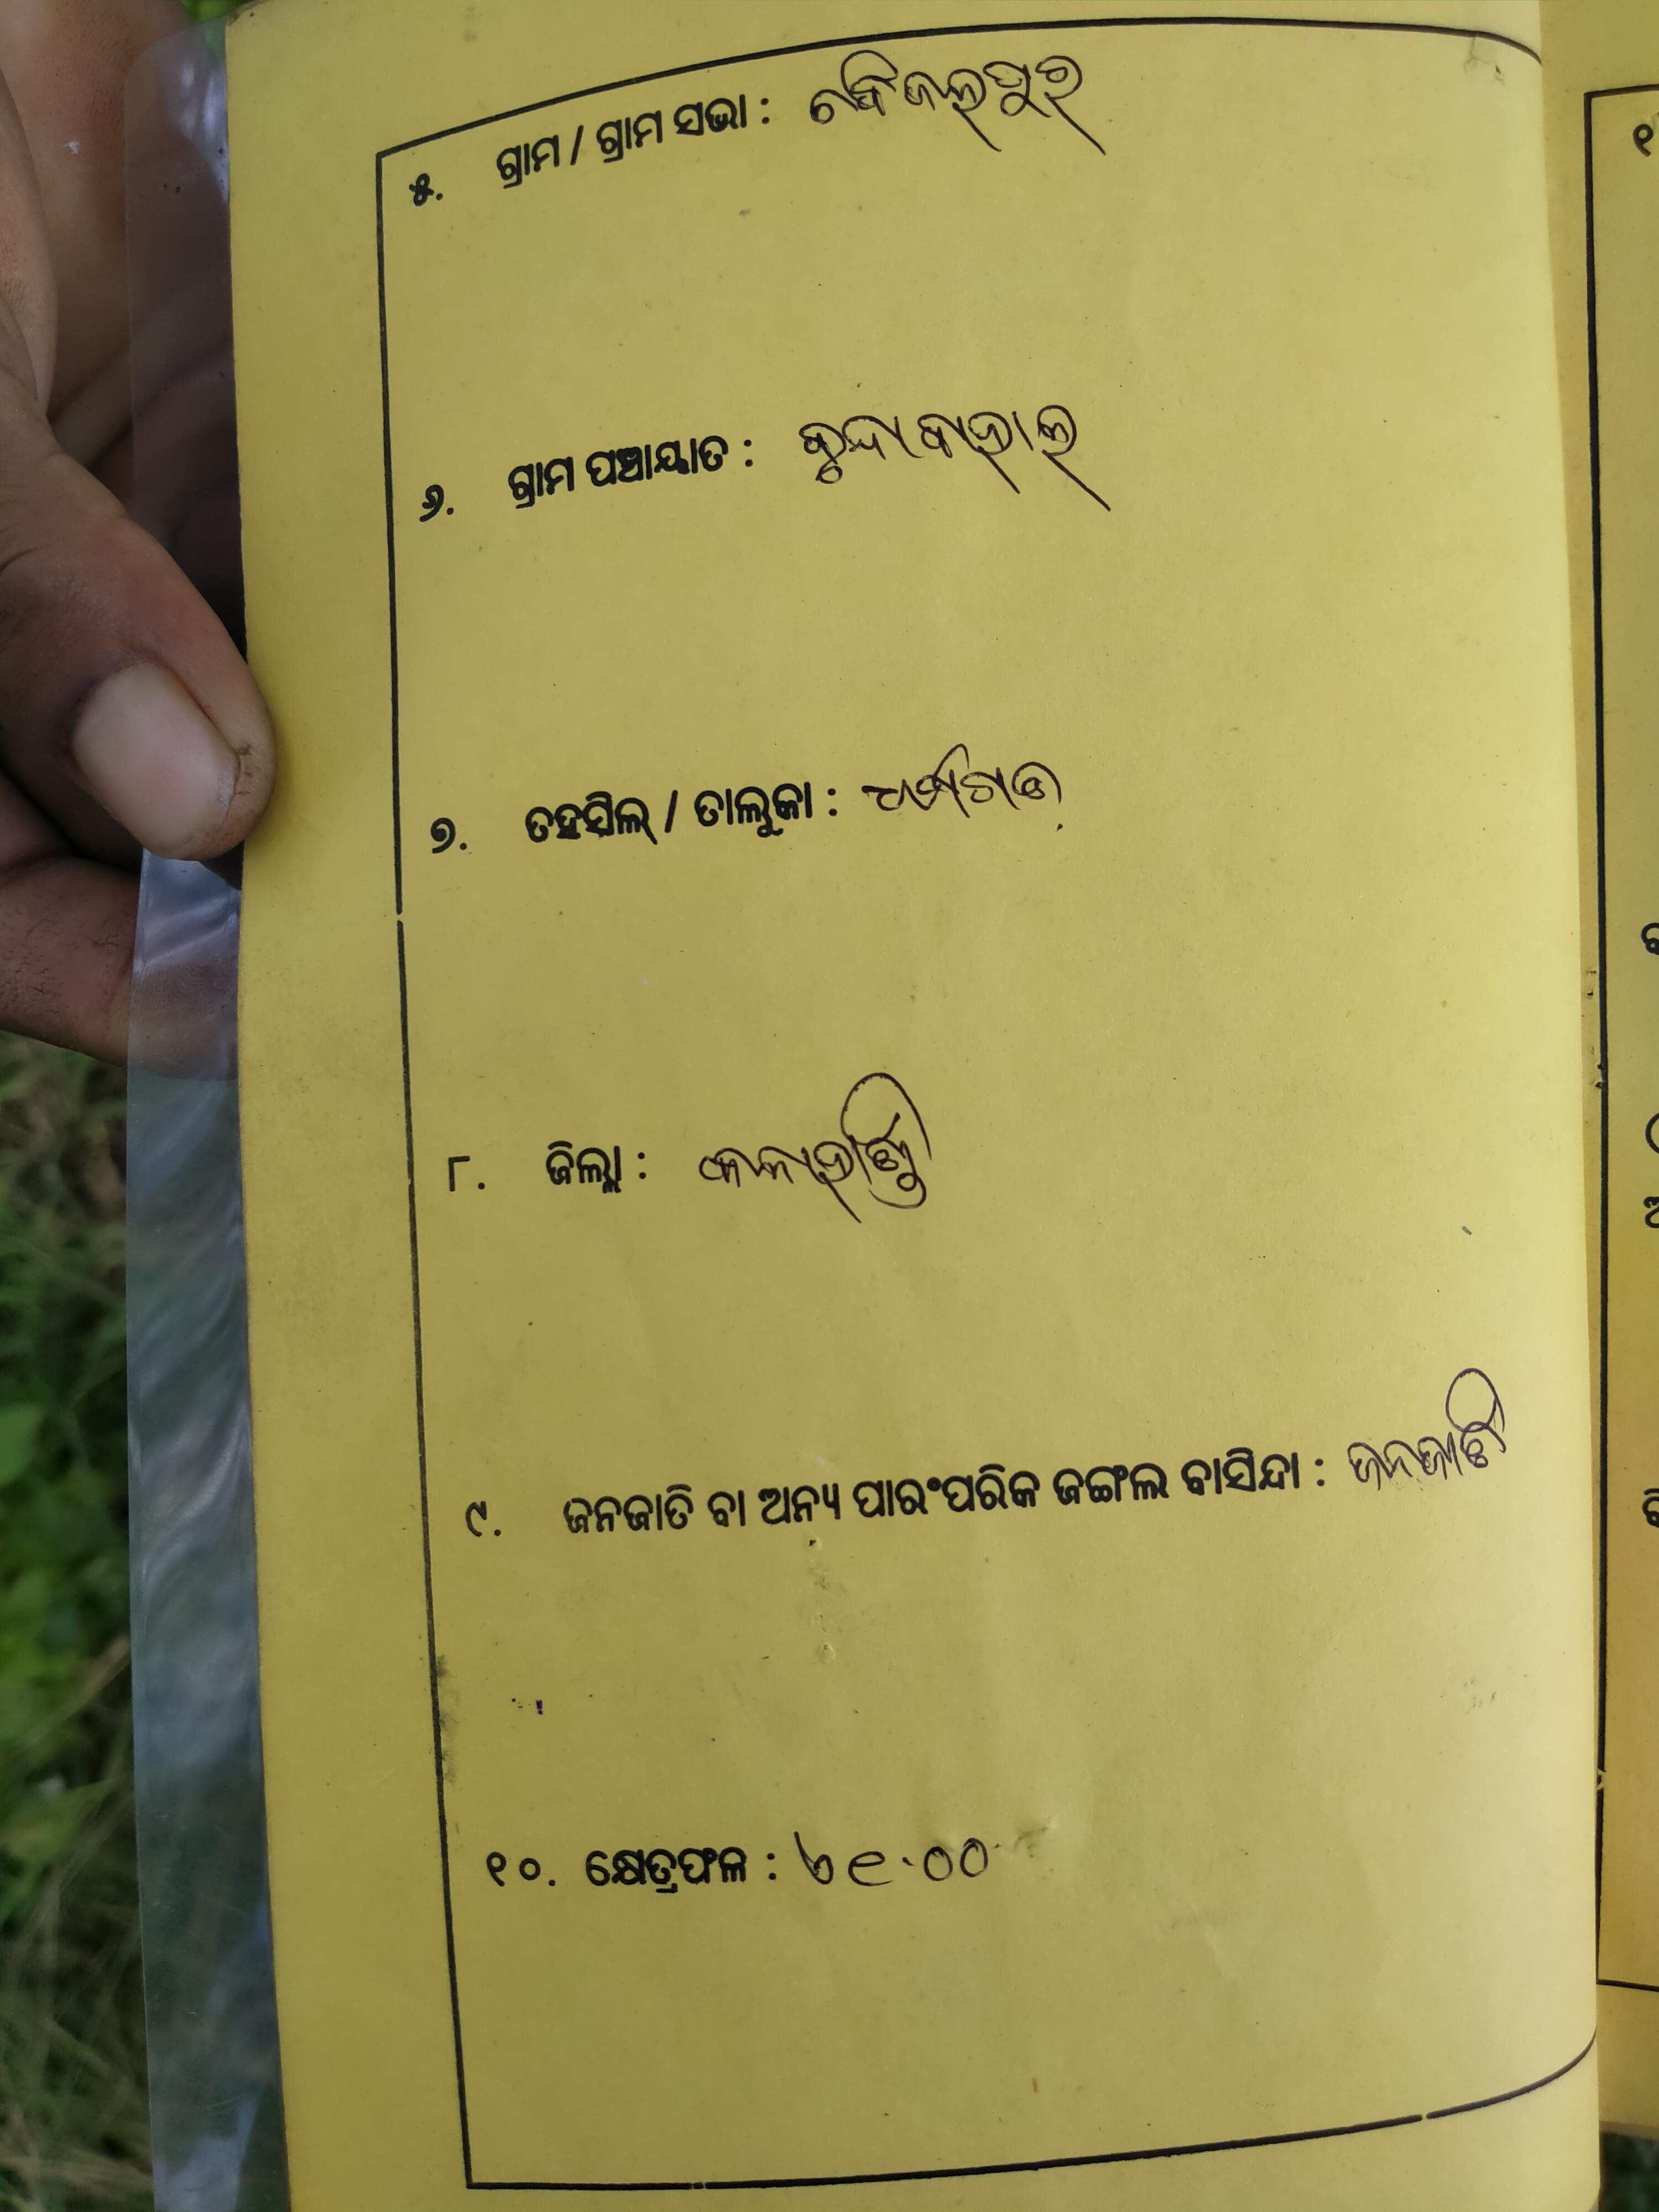 ୫. ଗ୍ରାମ / ଗ୍ରାମ ସଭା : ବିଜଲପୁର
୬. ଗ୍ରାମ ପଞ୍ଚାୟାତ : କୁନ୍ଦାବାହାଲ
୭. ତହସିଲ୍ / ତାଲୁକା : ଧର୍ମଗଡ
୮. ଜିଲ୍ଲା : କଳାହାଣ୍ଡି
୯. ଜନଜାତି ବା ଅନ୍ୟ ପାରଂପରିକ ଜଙ୍ଗଲ ବାସିନ୍ଦା : ଜନଜାତି
୧୦. କ୍ଷେତ୍ରଫଳ :